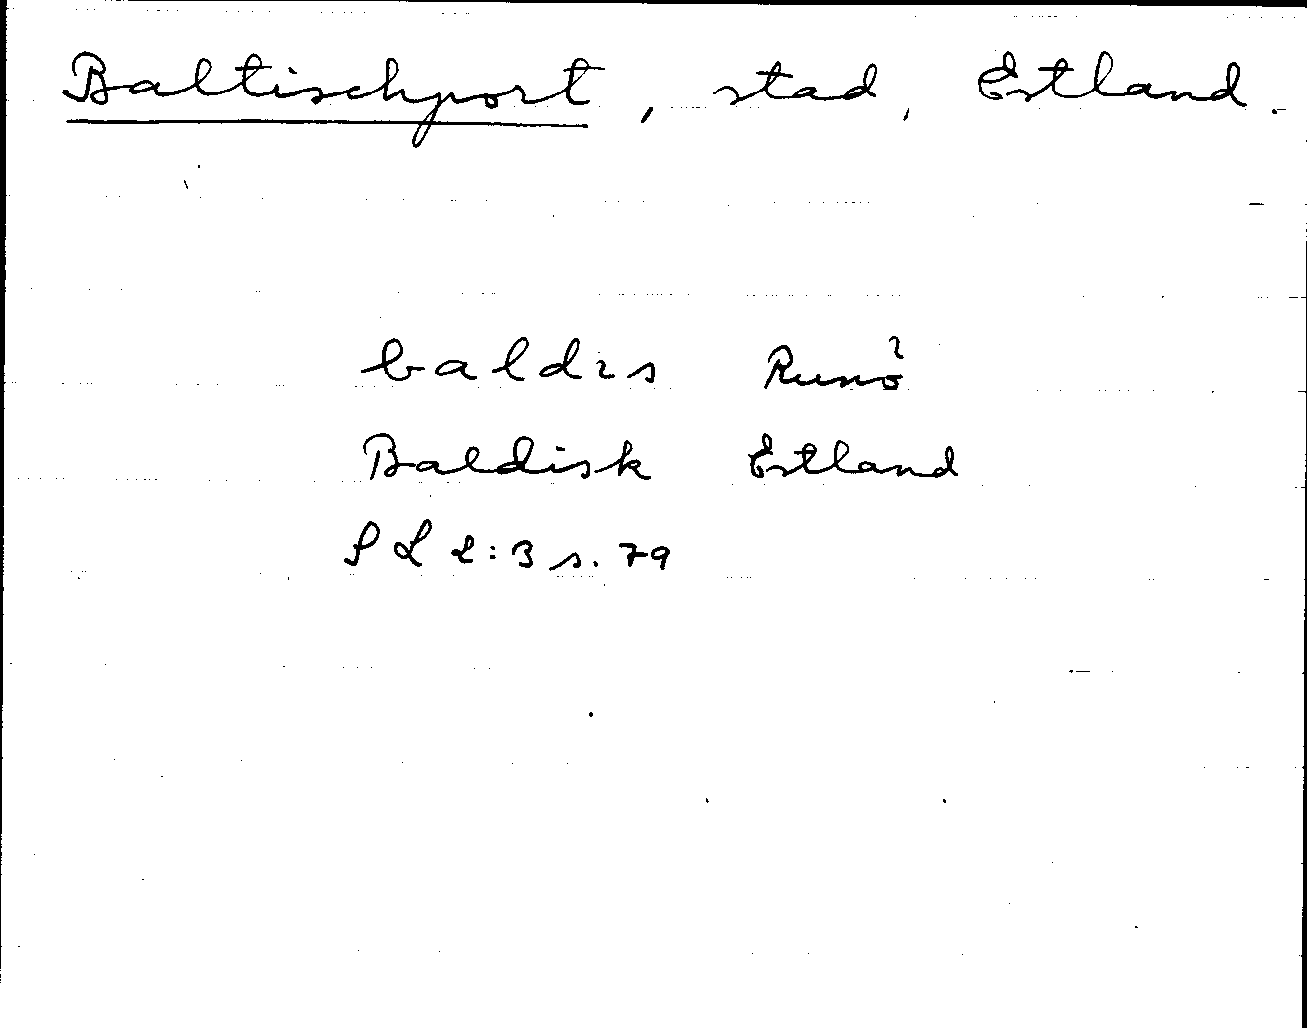 Baltischport, stad, Estland.
baldis Runö
Baldisk Estland
SL 2:3 s. 79